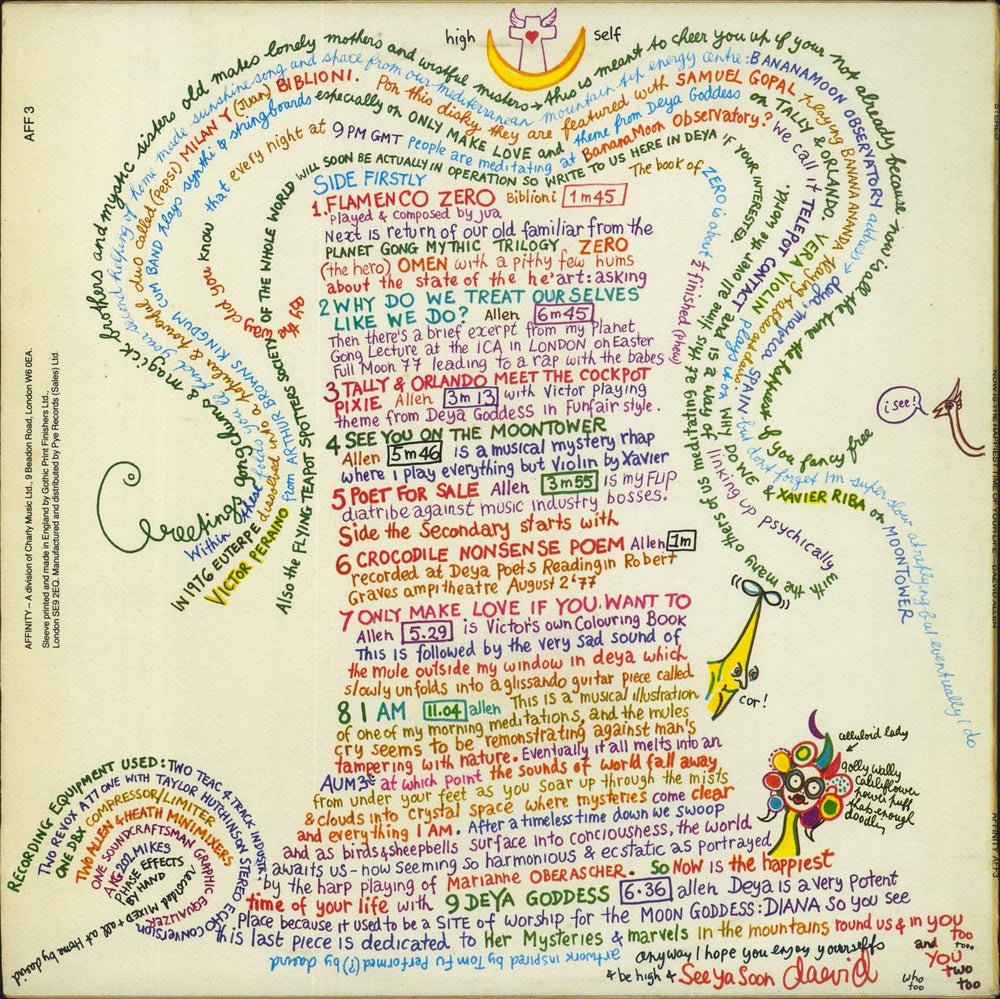 AFF 3
AFFINITY – A division of Charly Music Ltd., 9 Beadon Road, London W6 0EA.
Sleeve printed and made in England by Gothic Print Finishers Ltd.,
London SE9 2EQ. Manufactured and distributed by Pye Records (Sales) Ltd.
high self
Greetings gong chums & magick brothers and mystic sisters old mates lonely mothers and wistful misters → this is meant to cheer you up if your not already because now is all the time the happiness if you fancy free
Within these lads you'll find your second helping of home made sunshine song and space from our mediterranean mountain tip energy centre: BANANAMOON OBSERVATORY address → deya, majorca, SPAIN but don't forget I'm super slow at replying but eventually i do
IN 1976 EUTERPE dissolved into a popular & powerful duo called (PEPSI) MILAN Y (Juan) BIBLIONI. Pon this disky they are featured with SAMUEL GOPAL playing BANANA ANANDA
VICTOR PERAINO from ARTHUR BROWNS KINGDUM CUM BAND plays synthi & stringboards especially on ONLY MAKE LOVE and theme from Deya Goddess on TALLY & ORLANDO. VERA VIOLIN plays up on WHY DO WE & XAVIER RIBA on MOONTOWER
by the way did you know that every night at 9PM GMT people are meditating at BananaMoon Observatory? We call it TELEPOT CONTACT and is a way of linking up psychically with the many others of us meditating at this time all over the world.
Also the FLYING TEAPOT SPOTTERS SOCIETY OF THE WHOLE WORLD WILL SOON BE ACTUALLY IN OPERATION SO WRITE TO US HERE IN DEYA IF YOUR INTERESTED.
The book of ZERO is about ½ finished (phew)
SIDE FIRSTLY
1. FLAMENCO ZERO Biblioni 1m45
played & composed by jua
Next is return of our old familiar from the
PLANET GONG MYTHIC TRILOGY ZERO
(the hero) OMEN with a pithy few hums
about the state of the he'art: asking
2 WHY DO WE TREAT OURSELVES
LIKE WE DO? Allen 6m45
Then there's a brief excerpt from my Planet
Gong Lecture at the ICA in LONDON on Easter
Full Moon 77 leading to a rap with the babes
3 TALLY & ORLANDO MEET THE COCKPOT
PIXIE Allen 3m13 with Victor playing
theme from Deya Goddess in Funfair style.
4 SEE YOU ON THE MOONTOWER
Allen 5m46 is a musical mystery rhap
where i play everything but Violin by Xavier
5 POET FOR SALE Allen 3m55 is my FLIP
diatribe against music industry bosses.
Side the Secondary starts with
6 CROCODILE NONSENSE POEM Allen 1m
recorded at Deya Poets Reading in Robert
Graves ampitheatre August 2nd '77
7 ONLY MAKE LOVE IF YOU WANT TO
Allen 5.29 is Victor's own Colouring Book
This is followed by the very sad sound of
the mule outside my window in deya which
slowly unfolds into a glissando guitar piece called
8 I AM 11.04 allen This is a musical illustration
of one of my morning meditations, and the mules
cry seems to be remonstrating against man's
tampering with nature. Eventually it all melts into an
AUM at which point the sounds of world fall away
from under your feet as you soar up through the mists
& clouds into crystal space where mysteries come clear
and everything I AM. After a timeless time down we swoop
and as birds & sheepbells surface into conciousness, the world
awaits us – now seeming so harmonious & ecstatic as portrayed
by the harp playing of Marianne OBERASCHER. So Now is the happiest
time of your life with 9 DEYA GODDESS 6.36 allen Deya is a very potent
Place because it used to be a SITE of worship for the MOON GODDESS: DIANA so you see
this last piece is dedicated to Her Mysteries & marvels in the mountains round us & in you too
too...
and YOU two too
who too
anyway I hope you enjoy yourselfs
& be high & See Ya Soon daevid
artwork inspired by Tom Fu Performed (?) by daevid
i see!
cor!
celluloid lady
golly wally
cauliflower
power puff
thats enough
doodly
RECORDING EQUIPMENT USED: TWO TEAC 4 TRACK INDUSTR.
TWO REVOX A77 ONE WITH TAYLOR HUTCHINSON STEREO ECHO CONVERSION
ONE DBX COMPRESSOR/LIMITER
TWO ALLEN & HEATH MINIMIXERS
ONE SOUNDCRAFTSMAN GRAPHIC EQUALIZER
AKG 202 MIKES
PHASE EFFECTS
BY HAND
recorded MIXED + all at Home by daevid